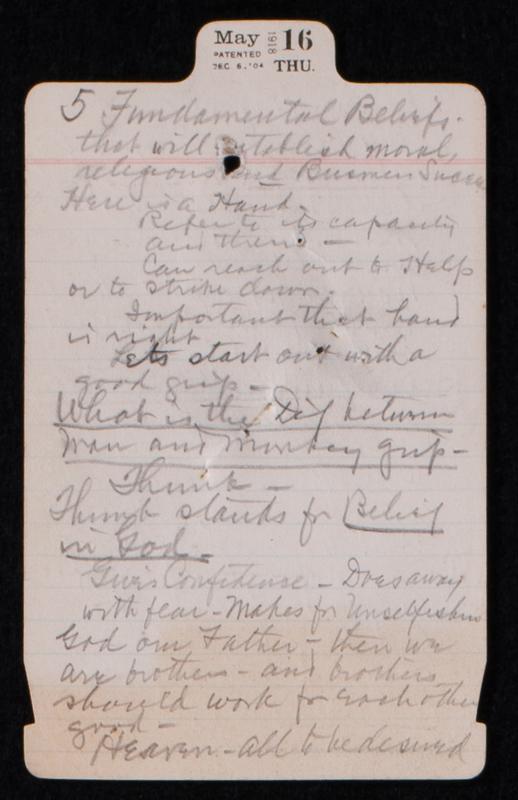 May 1918 16
PATENTED
DEC 6. '04 THU.
5 Fundamental Beliefs.
that will establish moral,
religious and Business Success
Here is a Hand.
Refer to its capacity
and
Can reach out to Help
or to strike down.
Important that hand
is right
Lets start out with a
good grip -
What is the Dif between
man and monkey grip -
Thumb -
Thumb stands for Belief
in God -
Gives Confidence - Does away
with fear - Makes for Unselfishness
God our Father - then we
are brothers - and brothers
should work for each other
good -
Heaven - all to be desired